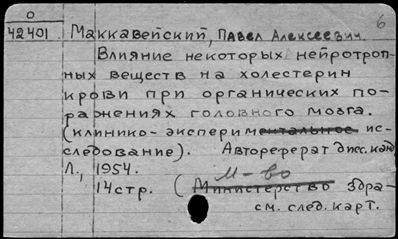 О 6
42401 Маккавейский, Павел Алексеевич.
Влияние некоторых нейротроп-
ных веществ на холестерин
крови при органических по-
ражениях головного мозга.
(клинико-экспериментальное ис-
следование). Автореферат дисс. канд
Л., 1954.
М-во
14 стр. (Министерство Здра-
см. след. карт.